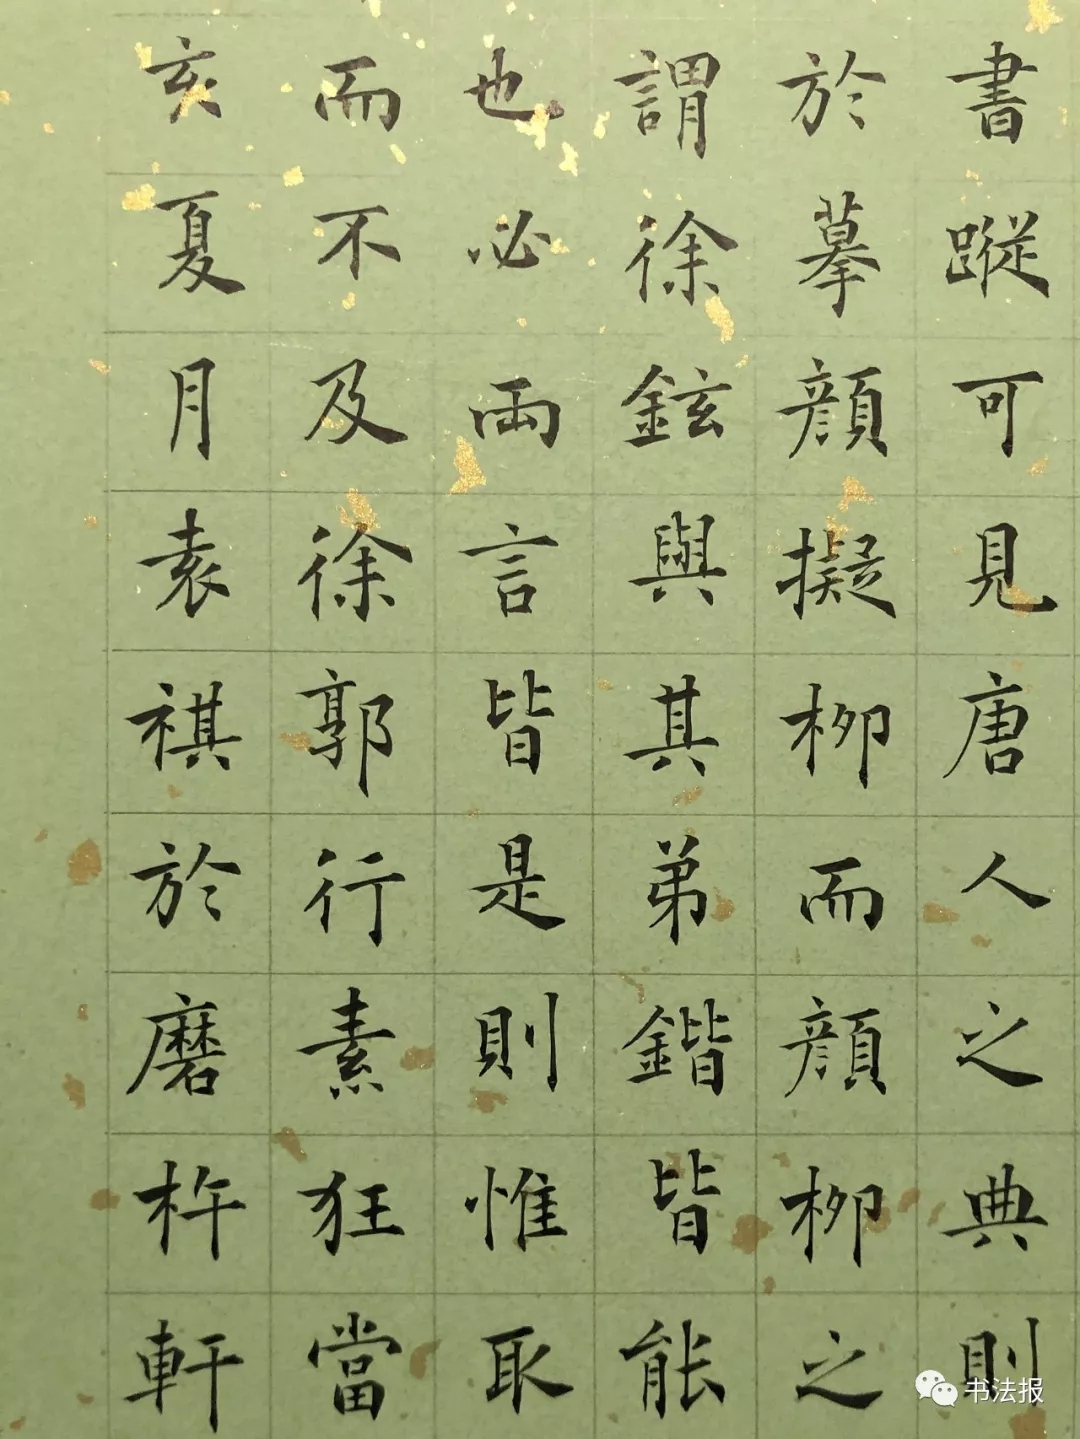 書蹤可見唐人之典則
於摹顔擬柳而顔柳之
謂徐鉉與其弟鍇皆能
也必兩言皆是則惟取
而不及徐郭行素狂當
亥夏月袁祺於磨杵軒
书法报